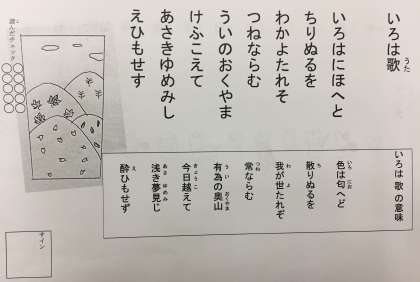 いろは歌
うた
いろはにほへと
ちりぬるを
わかよたれそ
つねならむ
うゐのおくやま
けふこえて
あさきゆめみし
ゑひもせす
いろは歌の意味
色は匂へど
いろ にお
散りぬるを
ち
我が世たれぞ
わ よ
常ならむ
つね
有為の奥山
うい おくやま
今日越えて
きょうこ
浅き夢見じ
あさ ゆめみ
酔ひもせず
え
読んだチェック
サイン